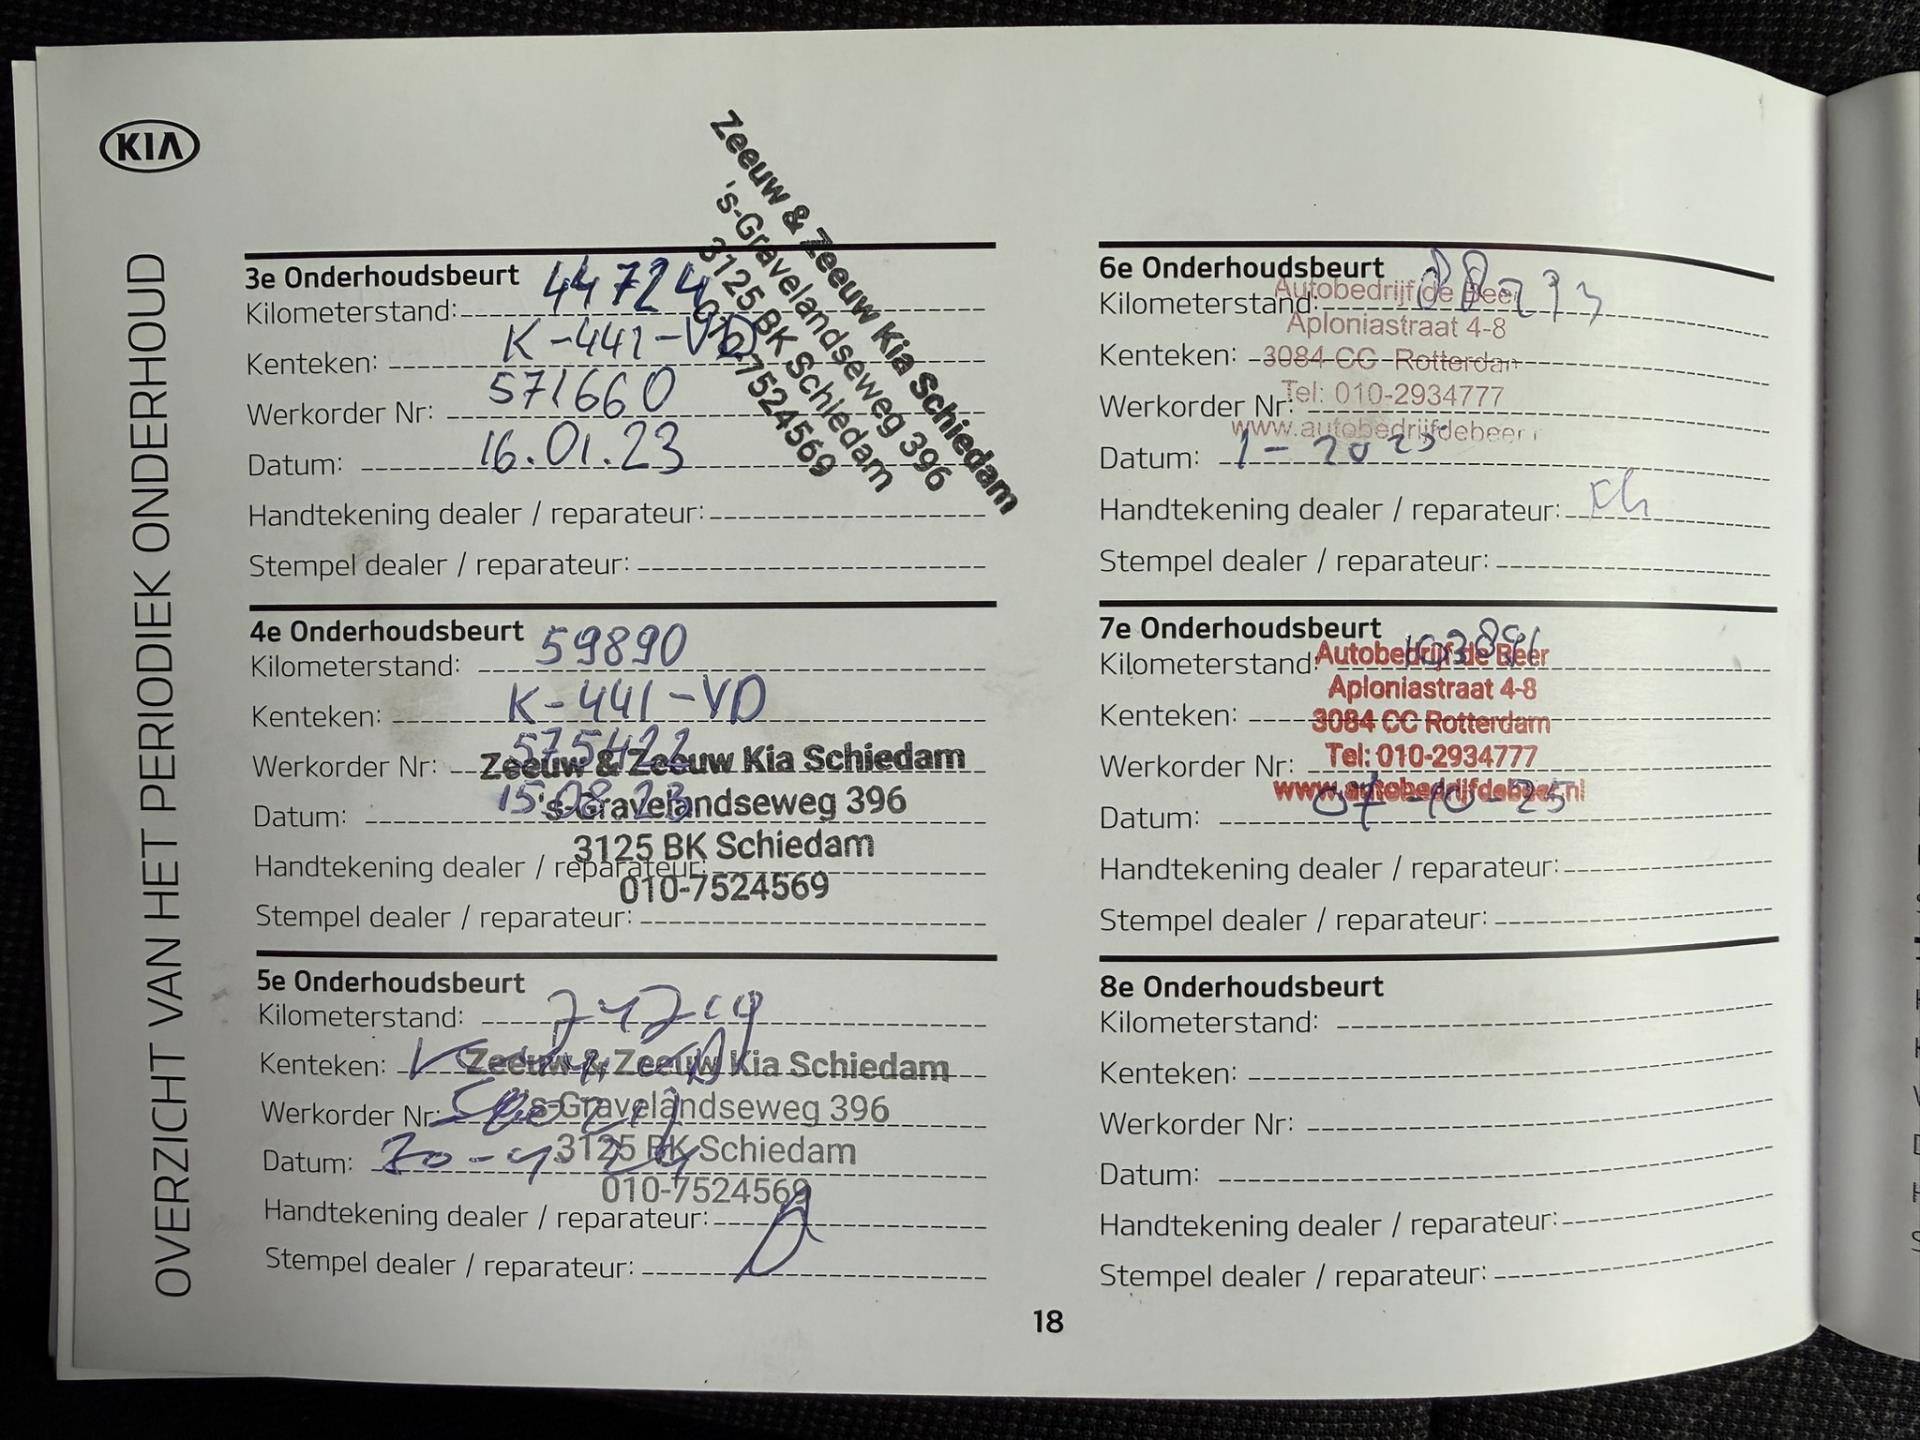 KIA
OVERZICHT VAN HET PERIODIEK ONDERHOUD
Zeeuw & Zeeuw Kia Schiedam
's-Gravelandseweg 396
3125 BK Schiedam
010-7524569
3e Onderhoudsbeurt
Kilometerstand: 44724
Kenteken: K-441-VD
Werkorder Nr: 571660
Datum: 16.01.23
Handtekening dealer / reparateur:
Stempel dealer / reparateur:
4e Onderhoudsbeurt
Kilometerstand: 59890
Kenteken: K-441-VD
Werkorder Nr: 575422
Zeeuw & Zeeuw Kia Schiedam
Datum: 15.08.23
's-Gravelandseweg 396
3125 BK Schiedam
Handtekening dealer / reparateur:
010-7524569
Stempel dealer / reparateur:
5e Onderhoudsbeurt
Kilometerstand:
Kenteken:
Zeeuw & Zeeuw Kia Schiedam
Werkorder Nr:
's-Gravelandseweg 396
Datum:
3125 BK Schiedam
010-7524569
Handtekening dealer / reparateur:
Stempel dealer / reparateur:
6e Onderhoudsbeurt
Autobedrijf de Beer
Kilometerstand:
Aploniastraat 4-8
Kenteken:
3084 CC Rotterdam
Tel: 010-2934777
Werkorder Nr:
www.autobedrijfdebeer.n
Datum: 1-2025
Handtekening dealer / reparateur:
Stempel dealer / reparateur:
7e Onderhoudsbeurt
Autobedrijf de Beer
Kilometerstand:
Aploniastraat 4-8
Kenteken:
3084 CC Rotterdam
Tel: 010-2934777
Werkorder Nr:
www.autobedrijfdebeer.nl
Datum: 07-10-25
Handtekening dealer / reparateur:
Stempel dealer / reparateur:
8e Onderhoudsbeurt
Kilometerstand:
Kenteken:
Werkorder Nr:
Datum:
Handtekening dealer / reparateur:
Stempel dealer / reparateur:
18